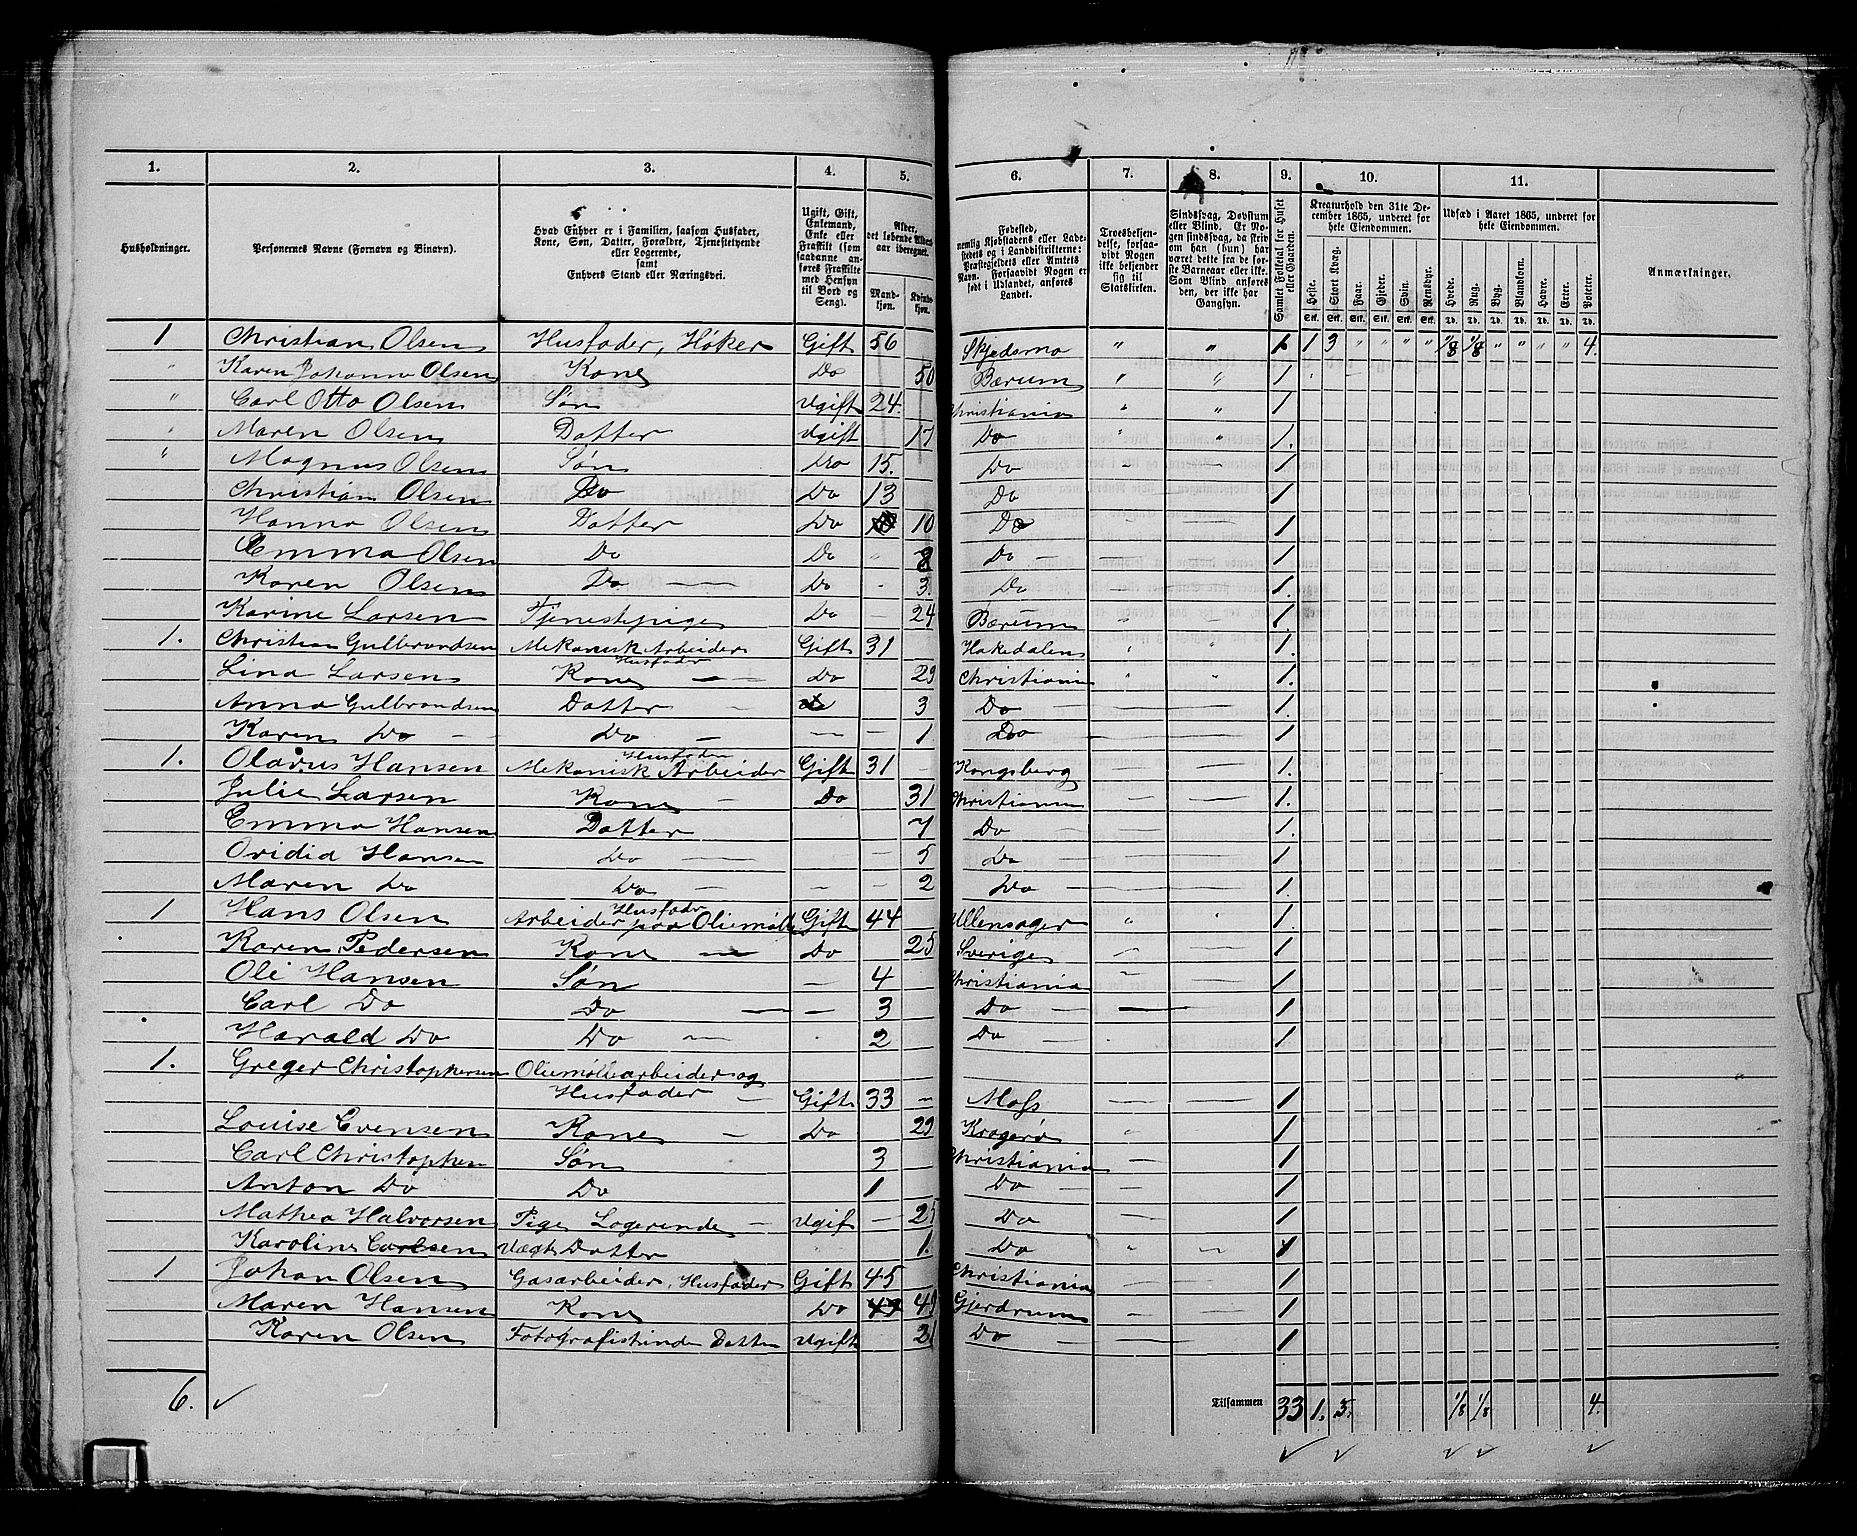 1. 2. 3. 4. 5. 6. 7. 8. 9. 10. 11.
Husholdninger.
Personernes Navne (Fornavn og Binavn).
Hvad Enhver er i Familien, saasom Husfader,
Kone, Søn, Datter, Forældre, Tjenestetyende
eller Logerende,
samt
Enhvers Stand eller Næringsvei.
Ugift, Gift,
Enkemand,
Enke eller
Fraskilt (som
saadanne an-
føres Fraskilte
med Hensyn
til Bord og
Seng).
Alder,
det løbende Alders-
aar iberegnet.
Mand-
kjøn.
Kvinde-
kjøn.
Fødested,
nemlig Kjøbstadens eller Lade-
stedets og i Landdistrikterne:
Præstegjeldets eller Amtets
Navn. Forsaavidt Nogen er
født i Udlandet, anføres
Landet.
Troesbekjen-
delse, forsaa-
vidt Nogen
ikke bekjender
sig til
Statskirken.
Sindssvag, Døvstum
eller Blind. Er No-
gen sindssvag, da skriv
om han (hun) har
været dette fra de før-
ste Barneaar eller ikke.
Som Blind anføres
den, der ikke har
Gangsyn.
Samlet Folketal for Huset
eller Gaarden.
Kreaturhold den 31te De-
cember 1865, underet for
hele Eiendommen.
Heste. Stort Kvæg. Faar. Gjeder. Svin. Rensdyr.
Stk. Stk. Stk. Stk. Stk. Stk.
Udsæd i Aaret 1865, underet for
hele Eiendommen.
Hvede. Rug. Byg. Blandkorn. Havre. Erter. Poteter.
Td. Td. Td. Td. Td. Td. Td.
Anmærkninger.
1 Christian Olsen Husfader, Høker Gift 56 Skjedsmo " " 1 1 3 " " " " 1/8 1/8 " " " " 4.
" Karen Johanne Olsen Kone Do 50 Bærum " " 1
" Carl Otto Olsen Søn Ugift 24. Christiania " " 1
" Maren Olsen Datter Ugift 17 Do " " 1.
" Magnus Olsen Søn Do 15. Do - - 1
Christian Olsen Do Do 13 Do - - 1
Hanna Olsen Datter Do 10 Do - - 1
Emma Olsen Do Do " 8 Do - - 1
Karen Olsen Do. - Do - 3. Do - - 1.
Karine Larsen Tjenestepige Do - 24 Bærum - - 1
1. Christian Gulbrandsen Mekanisk Arbeider Husfader Gift 31 Hakedalen " " 1.
Lina Larsen Kone - Do 29 Christiania " " 1.
Anna Gulbrandsen Datter - 3 Do - 1.
Karen Do - Do - - - 1 Do - 1
1. Olavus Hansen Mekanisk Arbeider Husfader Gift 31 Kongsberg - 1.
Julie Larsen Kone - Do 31 Christiania - - 1.
Emma Hansen Datter 7 Do - - 1.
Ovidia Hansen Do - - 5 Do - - 1
Maren Do Do - - - 2 Do - - 1.
1 Hans Olsen Arbeider paa Oliemølle Husfader Gift 44 Ullensager " " 1.
Karen Pedersen Kone - Do 25 Sverige - - 1
Oli Hansen Søn - 4 Christiania - - 1
Carl Do Do - - 3 Do - - 1
Harald Do Do - 2 Do - - 1
1. Greger Christophersen Oliemøllearbeider og
Husfader - Gift 33 - Moss - - 1
Louise Evensen Kone - Do 29 Kragerø " - 1
Carl Christophersen Søn 3 Christiania - 1
Anton Do Do 1 Do - - 1
Mathea Halvorsen Pige Logerende - Ugift - 25 Do - - 1
Karoline Carlsen Uægt Datter 1. Do " - 1
1 Johan Olsen Gasarbeider, Husfader Gift 45 Christiania - - 1
Maren Hansen Kone Do 49 Gjerdrum - - 1
Karen Olsen Fotografistinde Datter Ugift 21 Do - - 1
6. ✓ Tilsammen 33 1. 3. 1/8 1/8 4.
✓ ✓ ✓ ✓ ✓